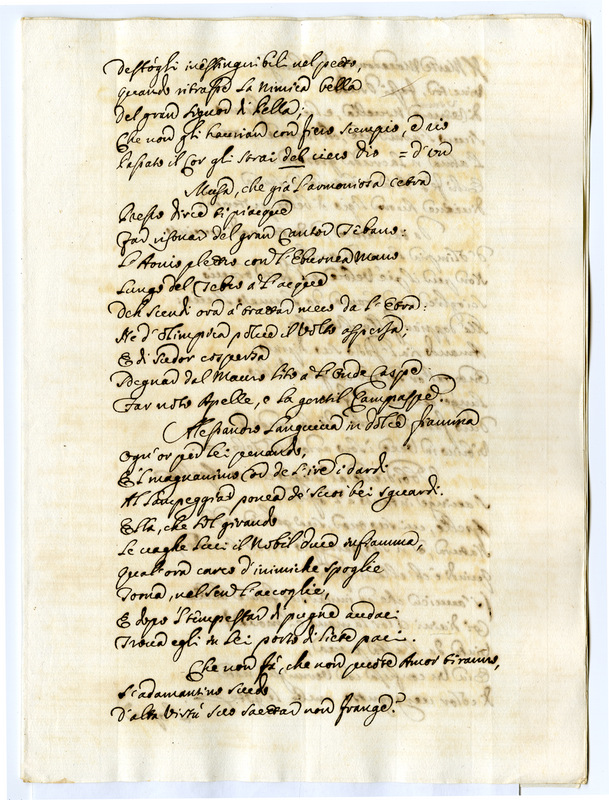 Destógli inestinguibili nel petto,
Quando ritrasse La Nimica bella
Del gran Signor di Pella;
Che non gli haurian con fiero scempio, e rio
Lasiato il Cor gli strai del cieco Dio = d'un
Musa, che già l'armoniosa Cetra
Presso Dirce ti piacque
Far risonar del gran Cantor Tebano:
L'Aonio plettro con l'Eburnea Mano
Lungo del Tebro a l'acque
Deh scendi ora à trattar meco da l'Etra:
Ne d'Olimpica polve il Volto aspersa;
E di sudor cospersa
Segnar dal Mauro lito à l'Onde Caspe
Far noto Apelle, e la gentil Campaspe.
Alessandro Languiva in dolce fiamma
ogn'or per lei penando,
E'l magnanimo Cor de l'ire i dardi
Al lampeggiar ponea de' suoi bei sguardi.
Ella, che sol girando
Le vaghe luci il Nobil Duce infiamma,
Qual'ora carco d'inimiche spoglie
Torna, nel sen l'accoglie,
E dopo il tempestar di pugne audaci
Trova egli in Lei porto di liete paci.
Che non fà, che non puote Amor tiranno,
S'adamantino scudo
D'alta Virtù suo saettar non frange?